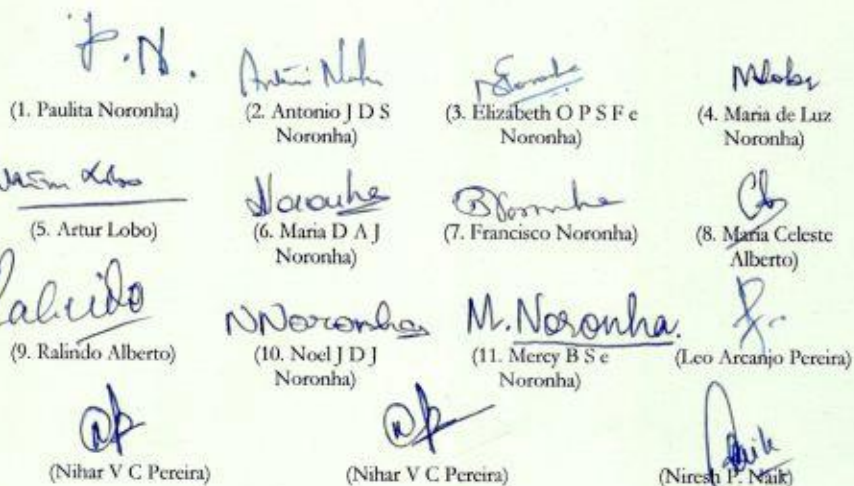 P. N.
(1. Paulita Noronha)
(2. Antonio J D S
Noronha)
(3. Elizabeth O P S F e
Noronha)
(4. Maria de Luz
Noronha)
(5. Artur Lobo)
Noronha
(6. Maria D A J
Noronha)
BNoronha
(7. Francisco Noronha)
(8. Maria Celeste
Alberto)
(9. Ralindo Alberto)
NNoronha
(10. Noel J D J
Noronha)
M. Noronha.
(11. Mercy B S e
Noronha)
(Leo Arcanjo Pereira)
(Nihar V C Pereira)
(Nihar V C Pereira)
Naik
(Niresh P. Naik)